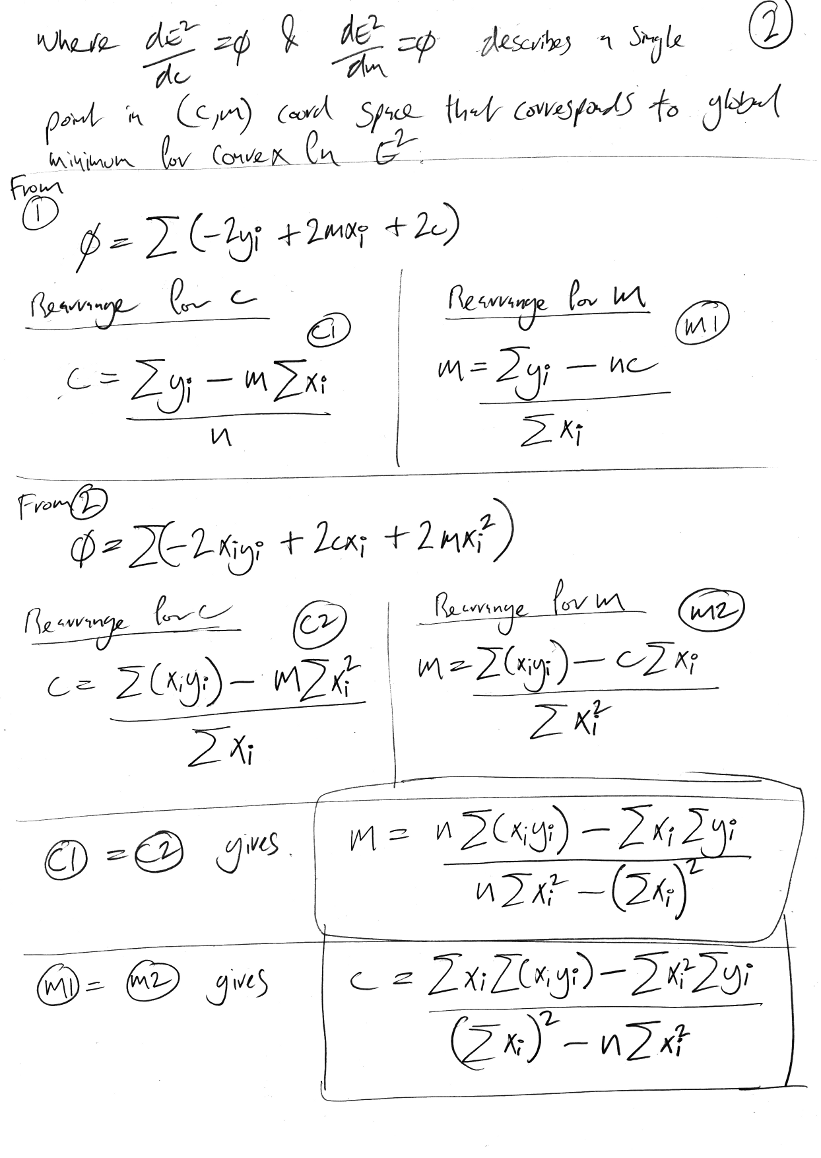 where dE²/dc =φ & dE²/dm =φ describes a single ②
point in (c,m) coord space that corresponds to global
minimum for convex fn E².
From ①
φ = Σ(-2yᵢ + 2mxᵢ + 2c)
Rearrange for c ⓒ1
c = (Σyᵢ - mΣxᵢ) / n
Rearrange for m ⓜ1
m = (Σyᵢ - nc) / Σxᵢ
From ②
φ = Σ(-2xᵢyᵢ + 2cxᵢ + 2mxᵢ²)
Rearrange for c ⓒ2
c = (Σ(xᵢyᵢ) - mΣxᵢ²) / Σxᵢ
Rearrange for m ⓜ2
m = (Σ(xᵢyᵢ) - cΣxᵢ) / Σxᵢ²
ⓒ1 = ⓒ2 gives. m = (nΣ(xᵢyᵢ) - ΣxᵢΣyᵢ) / (nΣxᵢ² - (Σxᵢ)²)
ⓜ1 = ⓜ2 gives c = (ΣxᵢΣ(xᵢyᵢ) - Σxᵢ²Σyᵢ) / ((Σxᵢ)² - nΣxᵢ²)